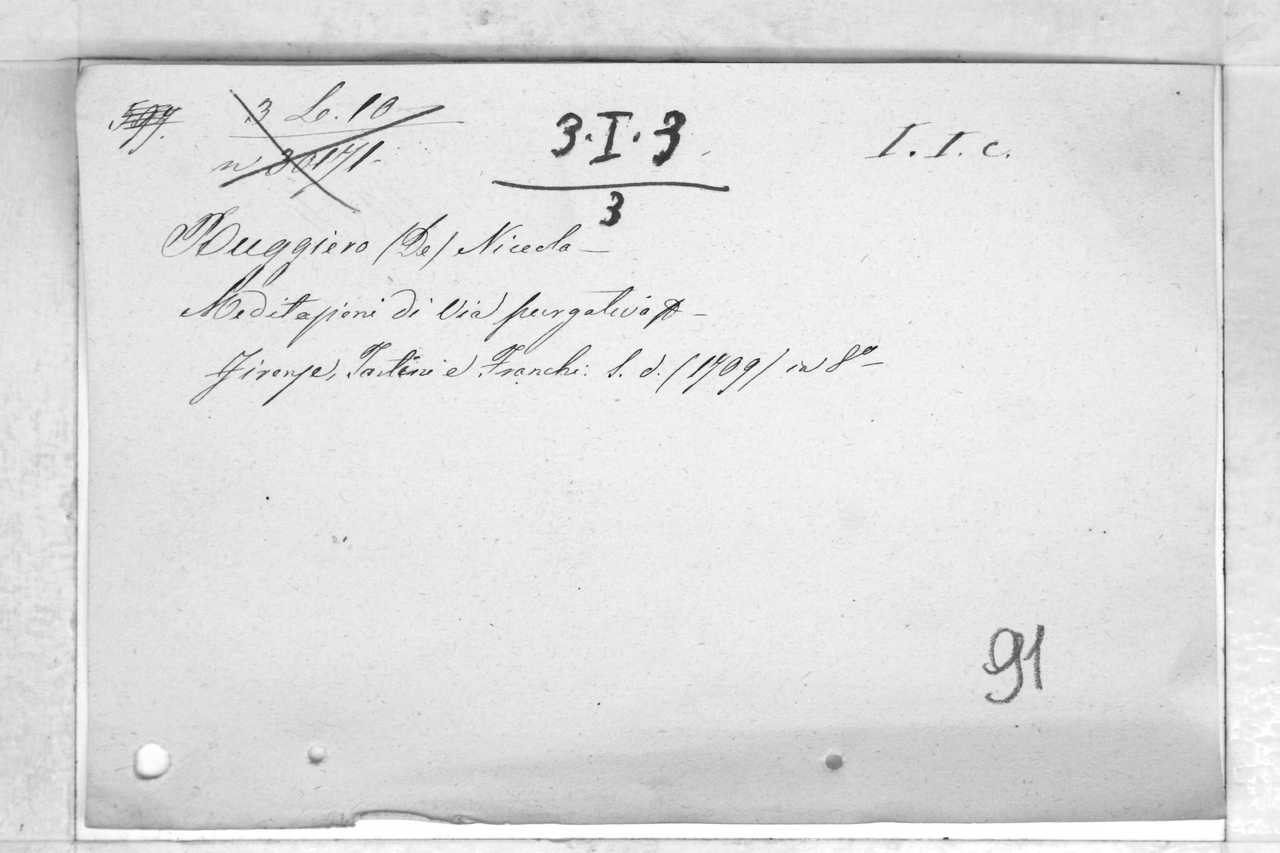 3 Lo. 10
n 30171
3·I·3
3
I. I. c.
Ruggiero (De) Nicola —
Meditazioni di via purgativa —
Firenze, Tartini e Franchi: s. d. (1799) in 8º —
91